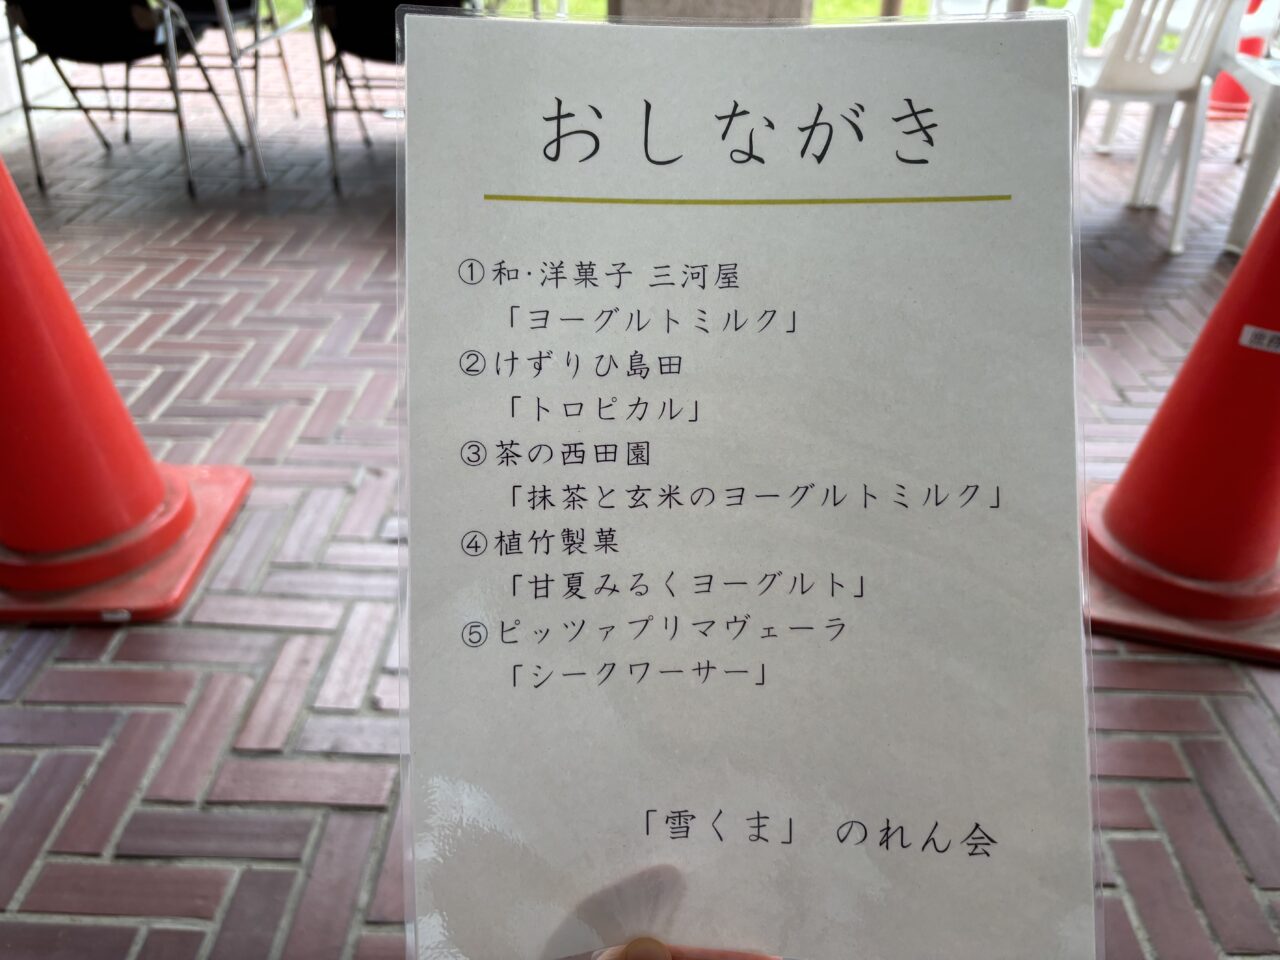 おしながき
①和・洋菓子 三河屋
「ヨーグルトミルク」
②けずりひ島田
「トロピカル」
③茶の西田園
「抹茶と玄米のヨーグルトミルク」
④植竹製菓
「甘夏みるくヨーグルト」
⑤ピッツァプリマヴェーラ
「シークワーサー」
「雪くま」 のれん会